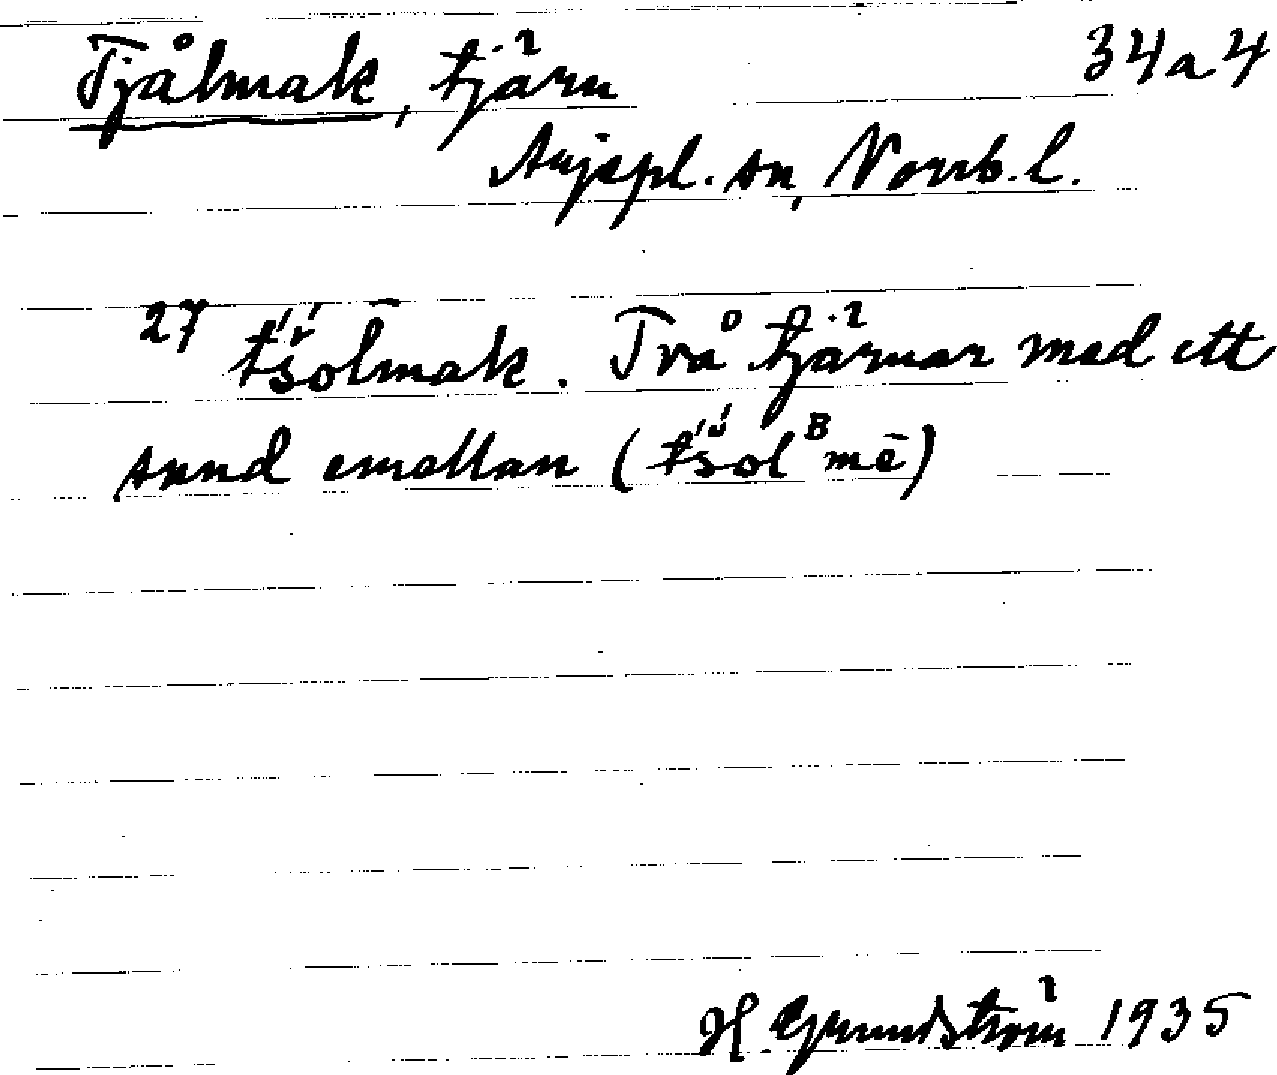 Tjålmak, tjärn 34a4
Arjepl. sn, Norrb. l.
27 tš́ol̄mak. Två tjärnar med ett
sund emellan (tš́olᴮmē)
H. Grundström 1935